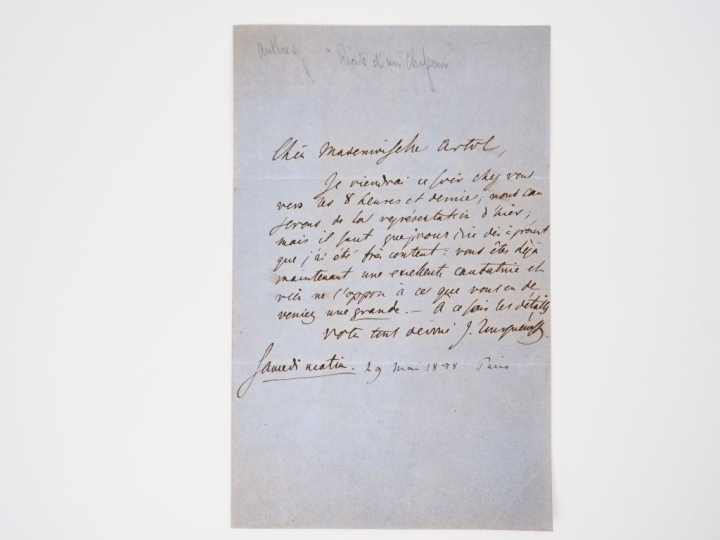 Author of "Récits d'un Chasseur"
Chère Mademoiselle Artôt,
Je viendrai ce soir chez vous
vers les 8 heures et demie, nous cau
serons de la représentation d'hier,
mais il faut que je vous dise dès à présent
que j'ai été très content : vous êtes déjà
maintenant une excellente cantatrice et
rien ne s'oppose à ce que vous en de
veniez une grande. — A ce soir les détails
Votre tout dévoué J. Tourguéneff.
Samedi matin. 29 Mai 1858 Paris